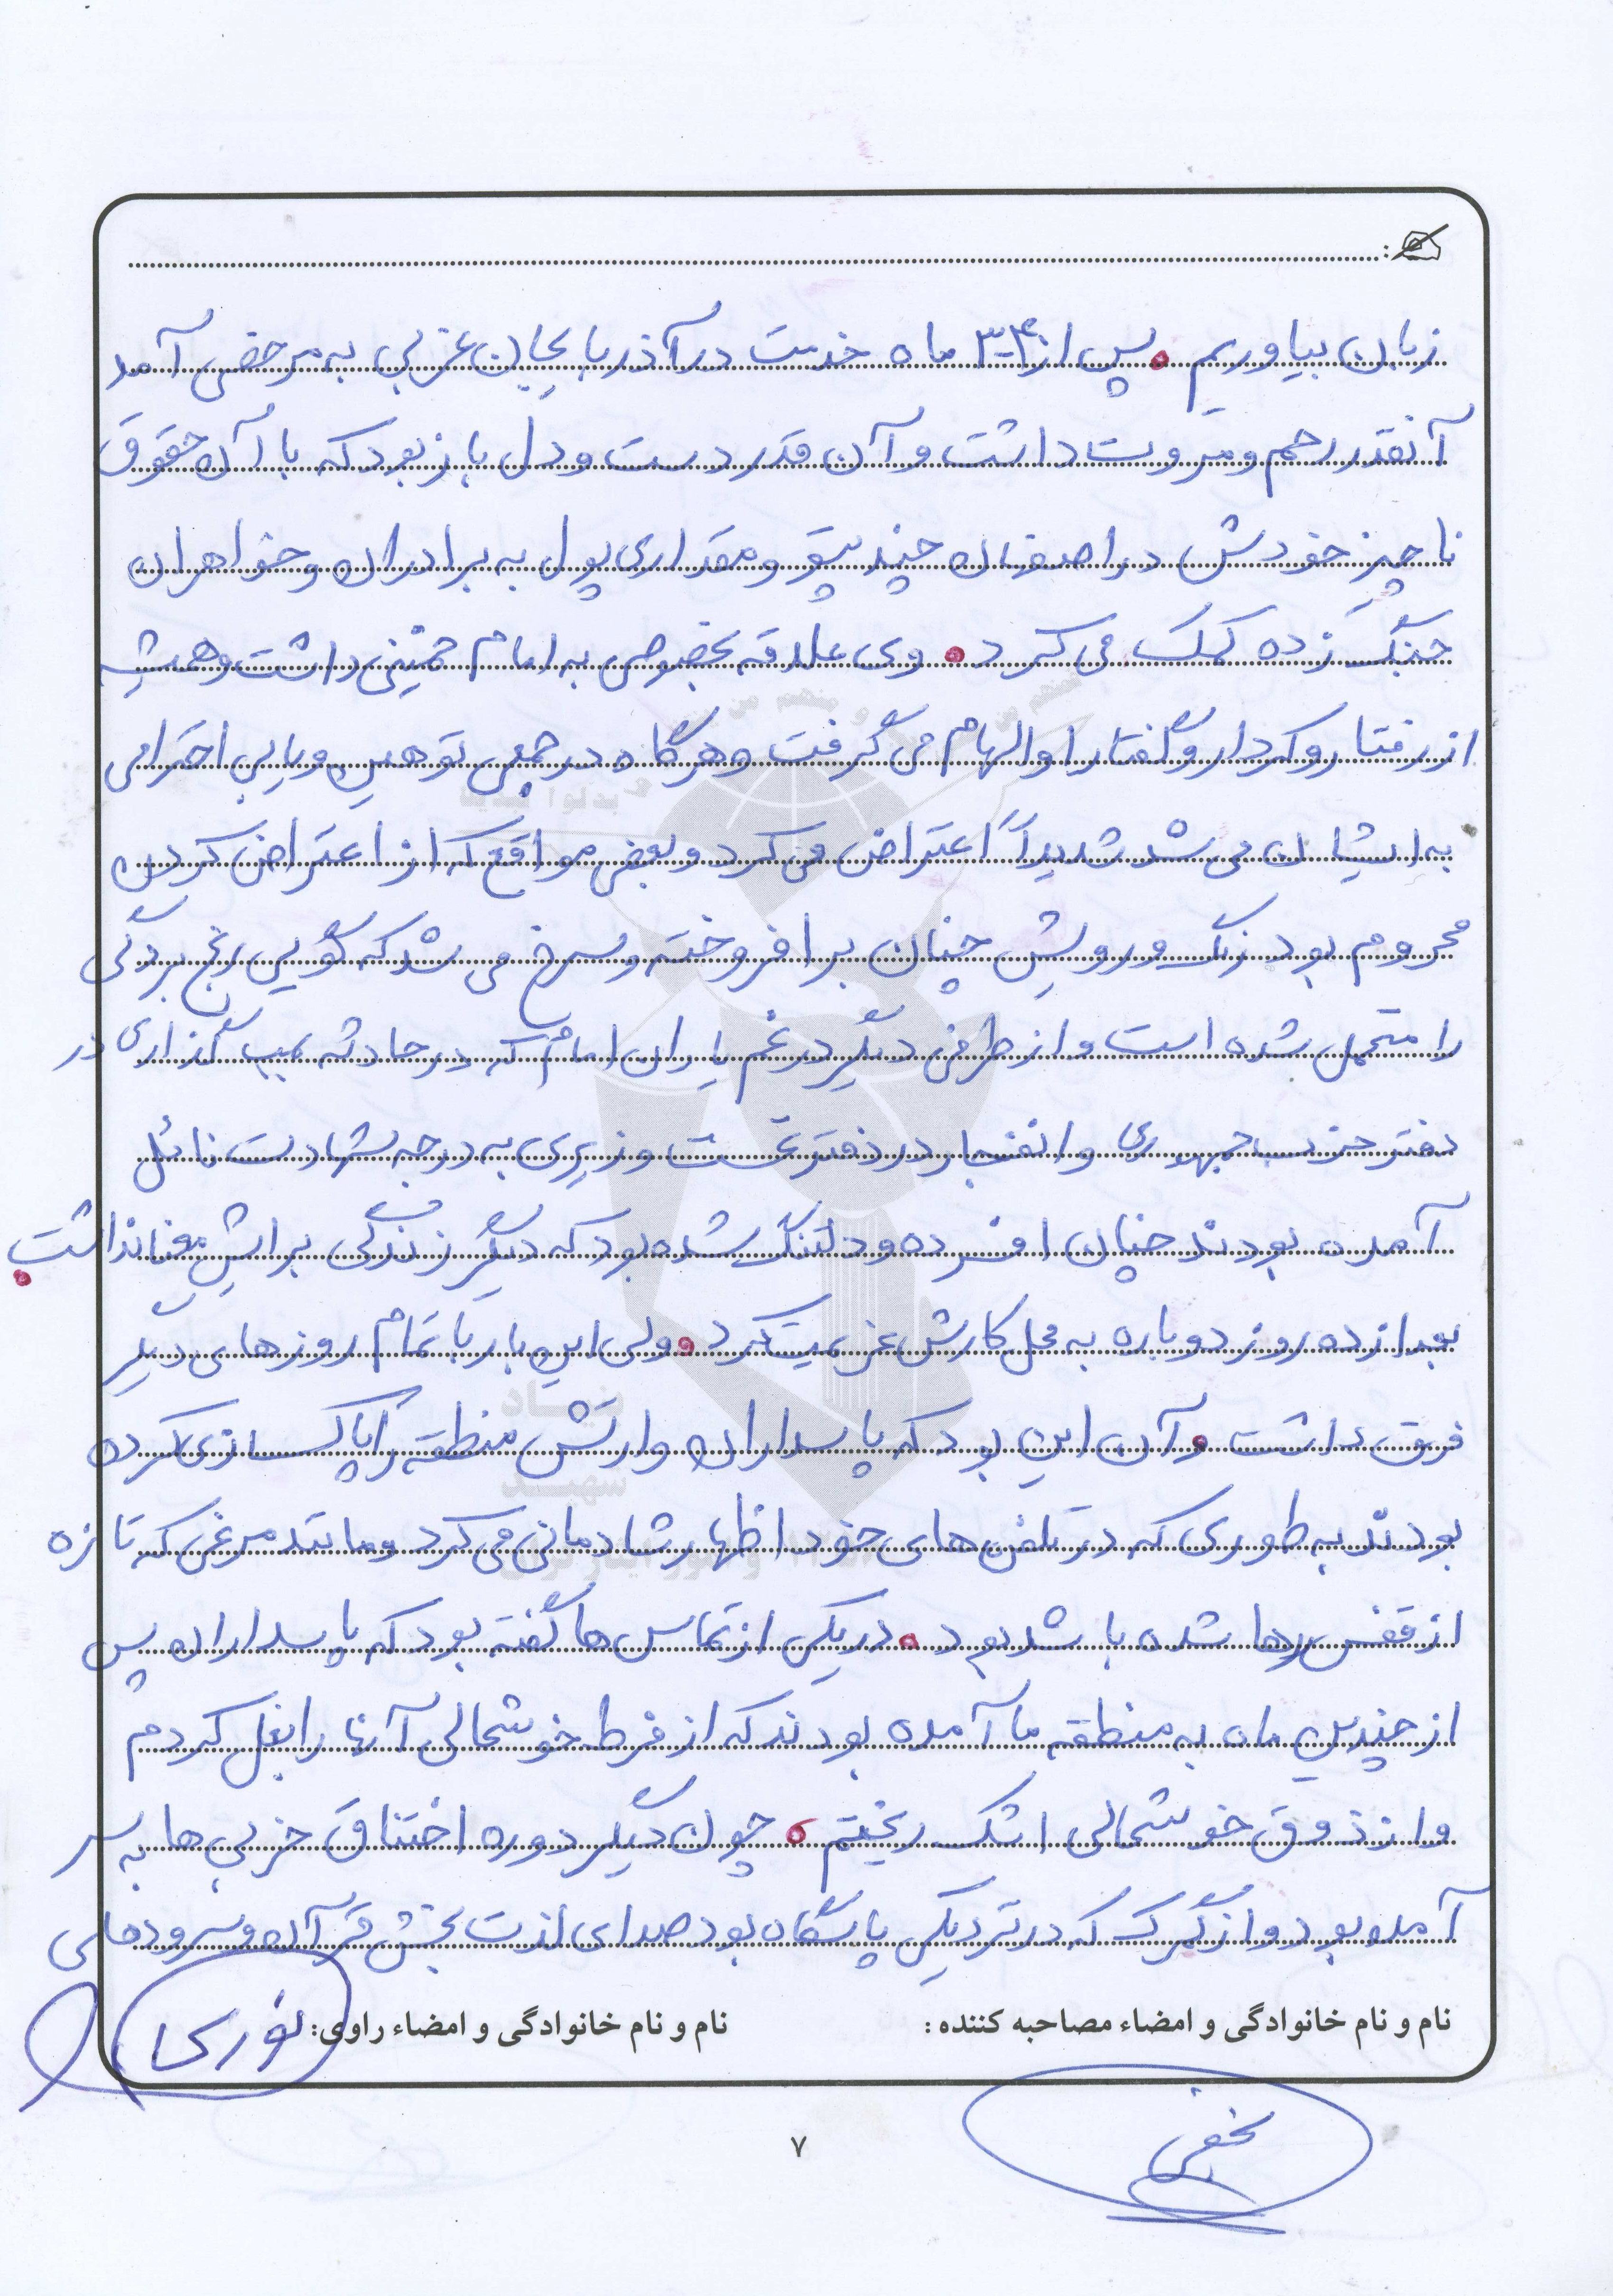 زبان بیاوریم. پس از ۴-۳ ماه خدمت در آذربایجان غربی به مرخصی آمد
آنقدر رحم و مروت داشت و آن قدر دست و دل باز بود که با آن حقوق
ناچیز خودش در اصفهان چند پتو و مقداری پول به برادران و خواهران
جنگ زده کمک می کرد. وی علاقه بخصوصی به امام خمینی داشت و همیشه
از رفتار و کردار و گفتار او الهام می گرفت و هرگاه در جمعی توهین و یا بی احترامی
به ایشان می شد شدیداً اعتراض می کرد و بعضی مواقع که از اعتراض کردن
محروم بود رنگ و رویش چنان برافروخته و سرخ می شد که گویی رنج بردگی
را متحمل شده است و از طرفی دیگر در غم یاران امام که در حادثه بمب گذاری در
دفتر حزب جمهوری و انفجار در دفتر نخست وزیری به درجه شهادت نائل
آمده بودند چنان افسرده و دلتنگ شده بود که دیگر زندگی برایش معنا نداشت.
بعد از ده روز دوباره به محل کارش عزیمت کرد. ولی این بار با تمام روزهای دیگر
فرق داشت و آن این بود که پاسداران و ارتش منطقه را پاکسازی کرده
بودند به طوری که در تلفن های خود اظهار شادمانی می کرد و مانند مرغی که تازه
از قفس رها شده باشد بود. در یکی از تماس ها گفته بود که پاسداران پس
از چندین ماه به منطقه ما آمده بودند که از فرط خوشحالی آنها را بغل کردم
و از ذوق خوشحالی اشک ریختم. چون دیگر دوره اختناق حزبی ها به سر
آمده بود و از گمرک که در نزدیکی پاسگاه بود صدای لذت بخش قرآن و سرودهای
نام و نام خانوادگی و امضاء مصاحبه کننده: نام و نام خانوادگی و امضاء راوی: نوری
نجفی
۷